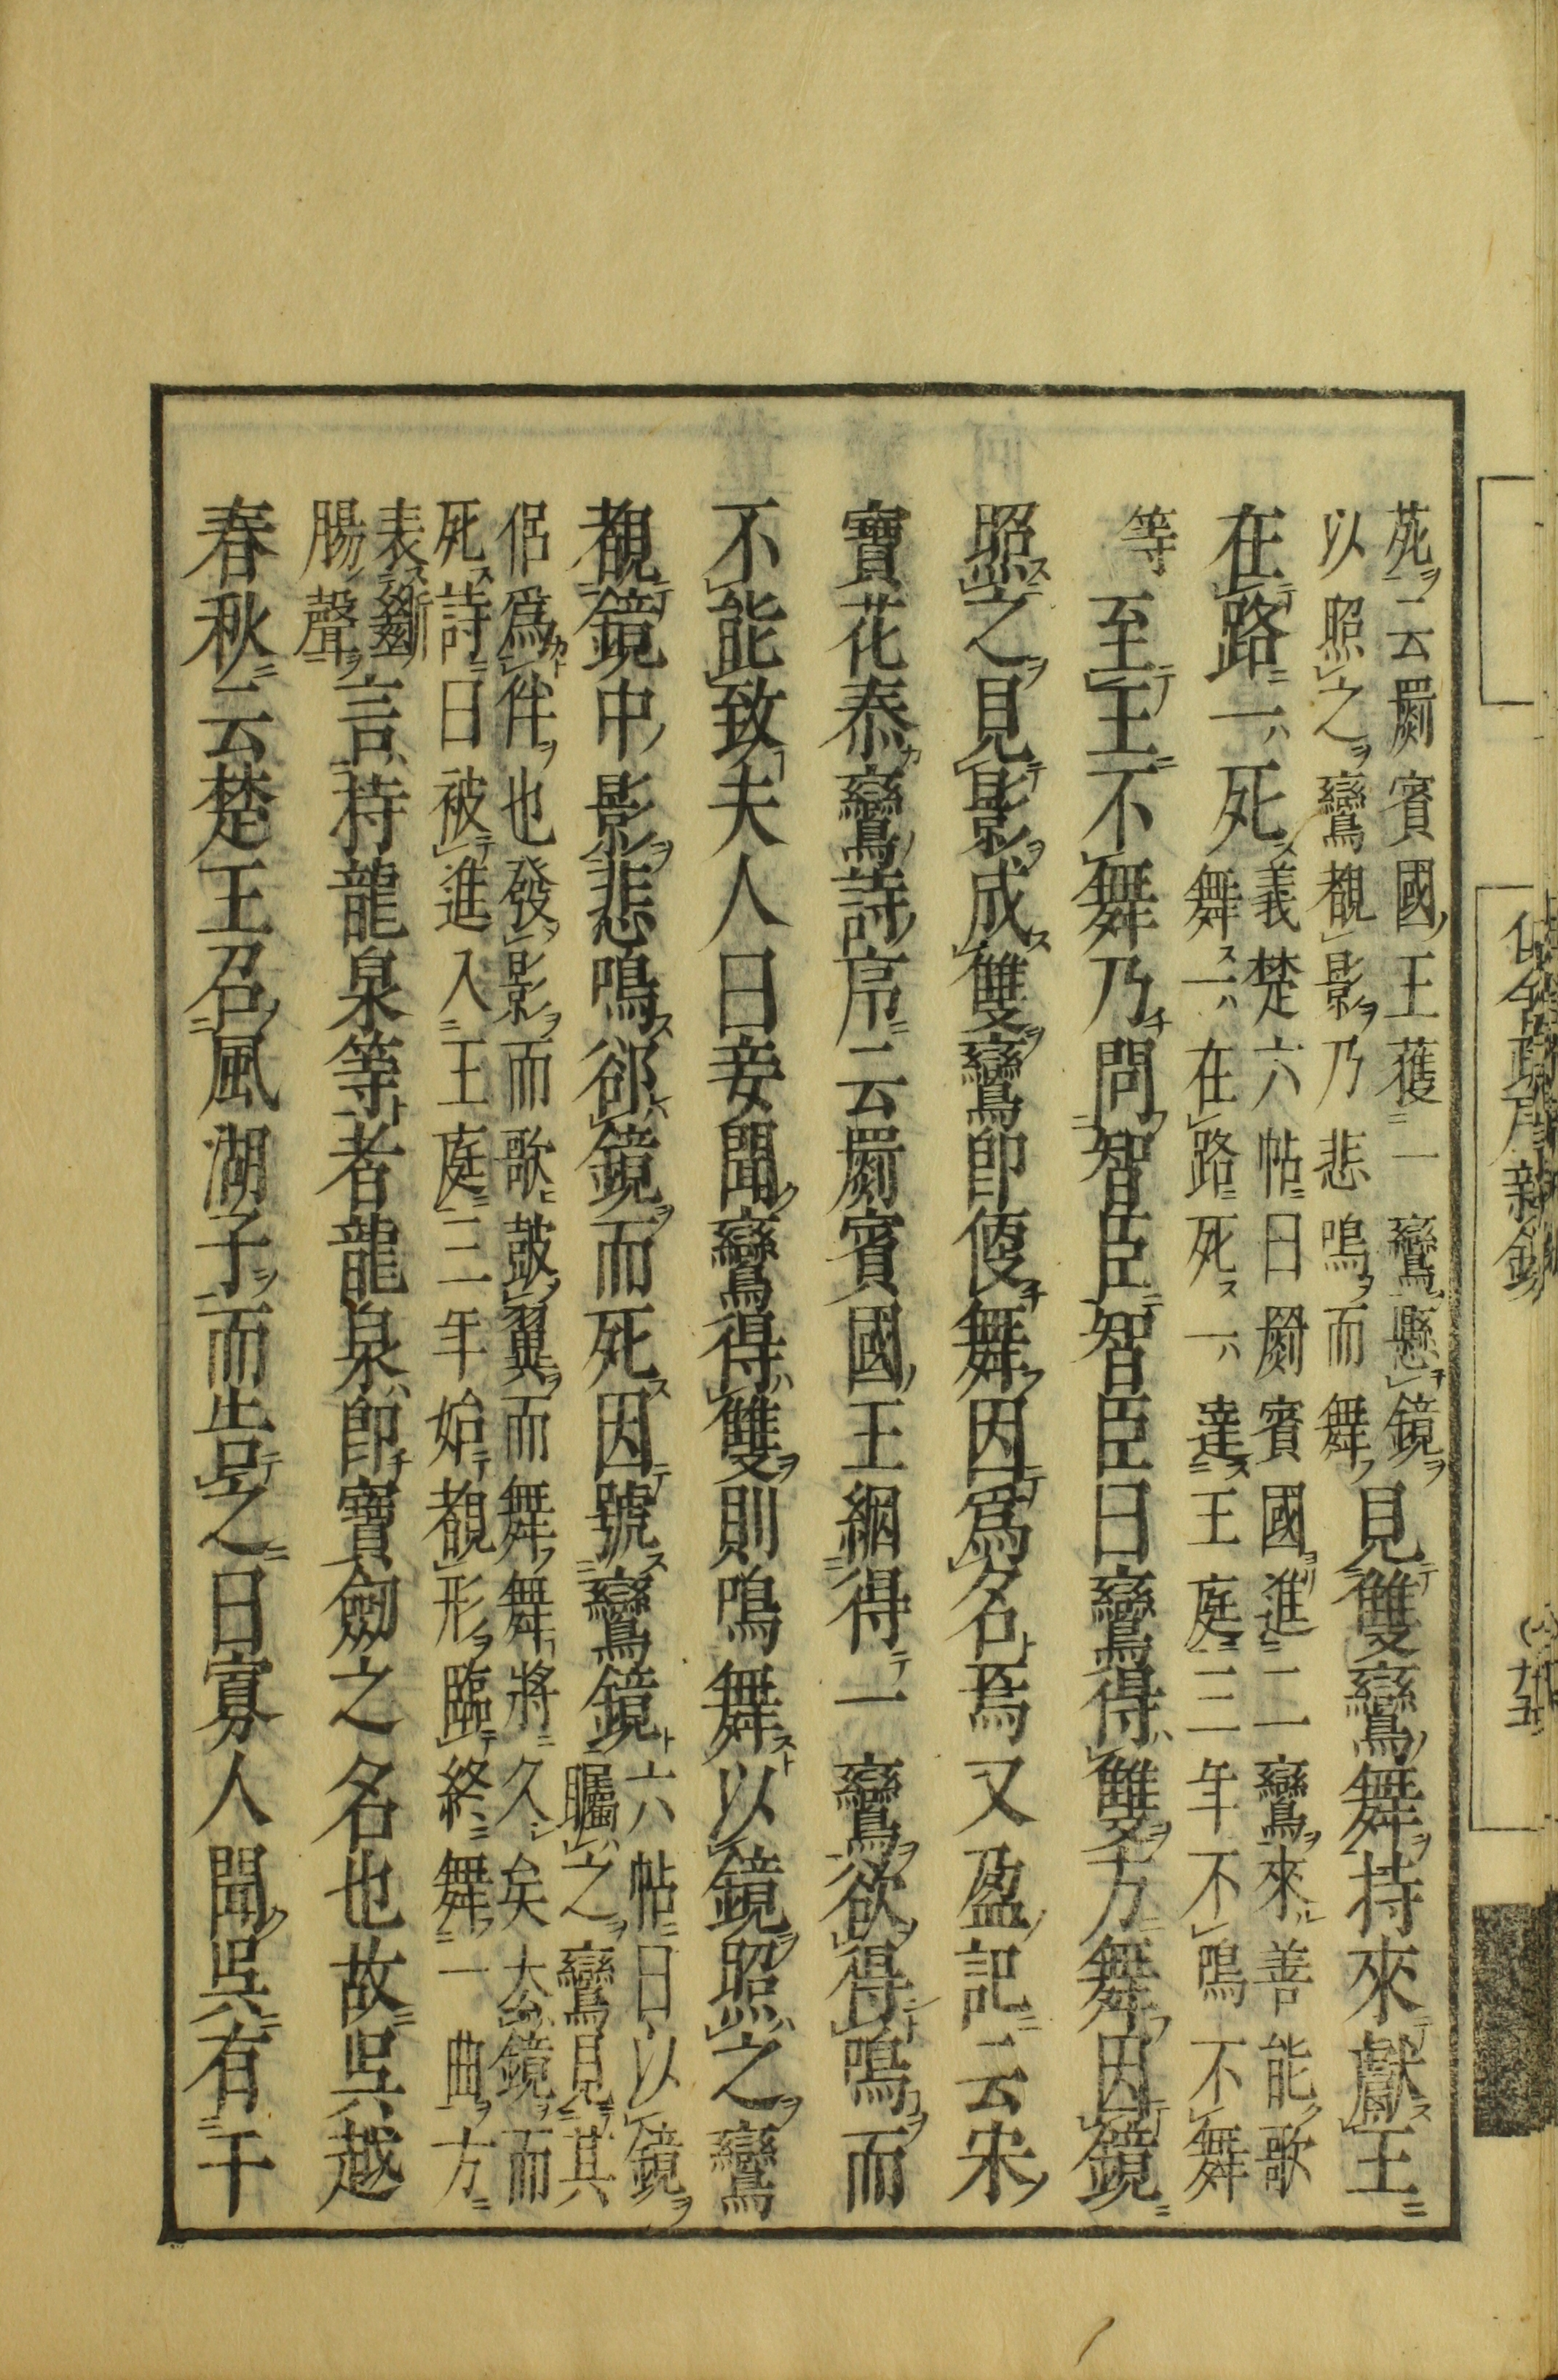 苑云罽賓國王獲一鸞懸鏡
以照之鸞覩影乃悲鳴而舞
見雙鸞舞持來獻王
在路一死
義楚六帖曰罽賓國進二鸞來善能歌
舞一在路死一達王庭三年不鳴不舞
等
至王不舞乃問智臣智臣曰鸞得雙方舞因鏡
照之見影成雙鸞即便舞因爲名焉又盈記云宋
寶花泰鸞詩序云罽賓國王網得一鸞欲得鳴而
不能致夫人曰妾聞鸞得雙則鳴舞以鏡照之鸞
覩鏡中影悲鳴郤鏡而死因號鸞鏡
六帖曰以鏡
矚之鸞見其
侶爲伴也發影而歌鼓翼而舞舞將久矣厺鏡而
死詩曰被進入王庭三年始覩形臨終舞一曲方
表斷
腸聲
言持龍泉等者龍泉即寶劒之名也故吳越
春秋云楚王召風湖子而告之曰寡人聞吳有干